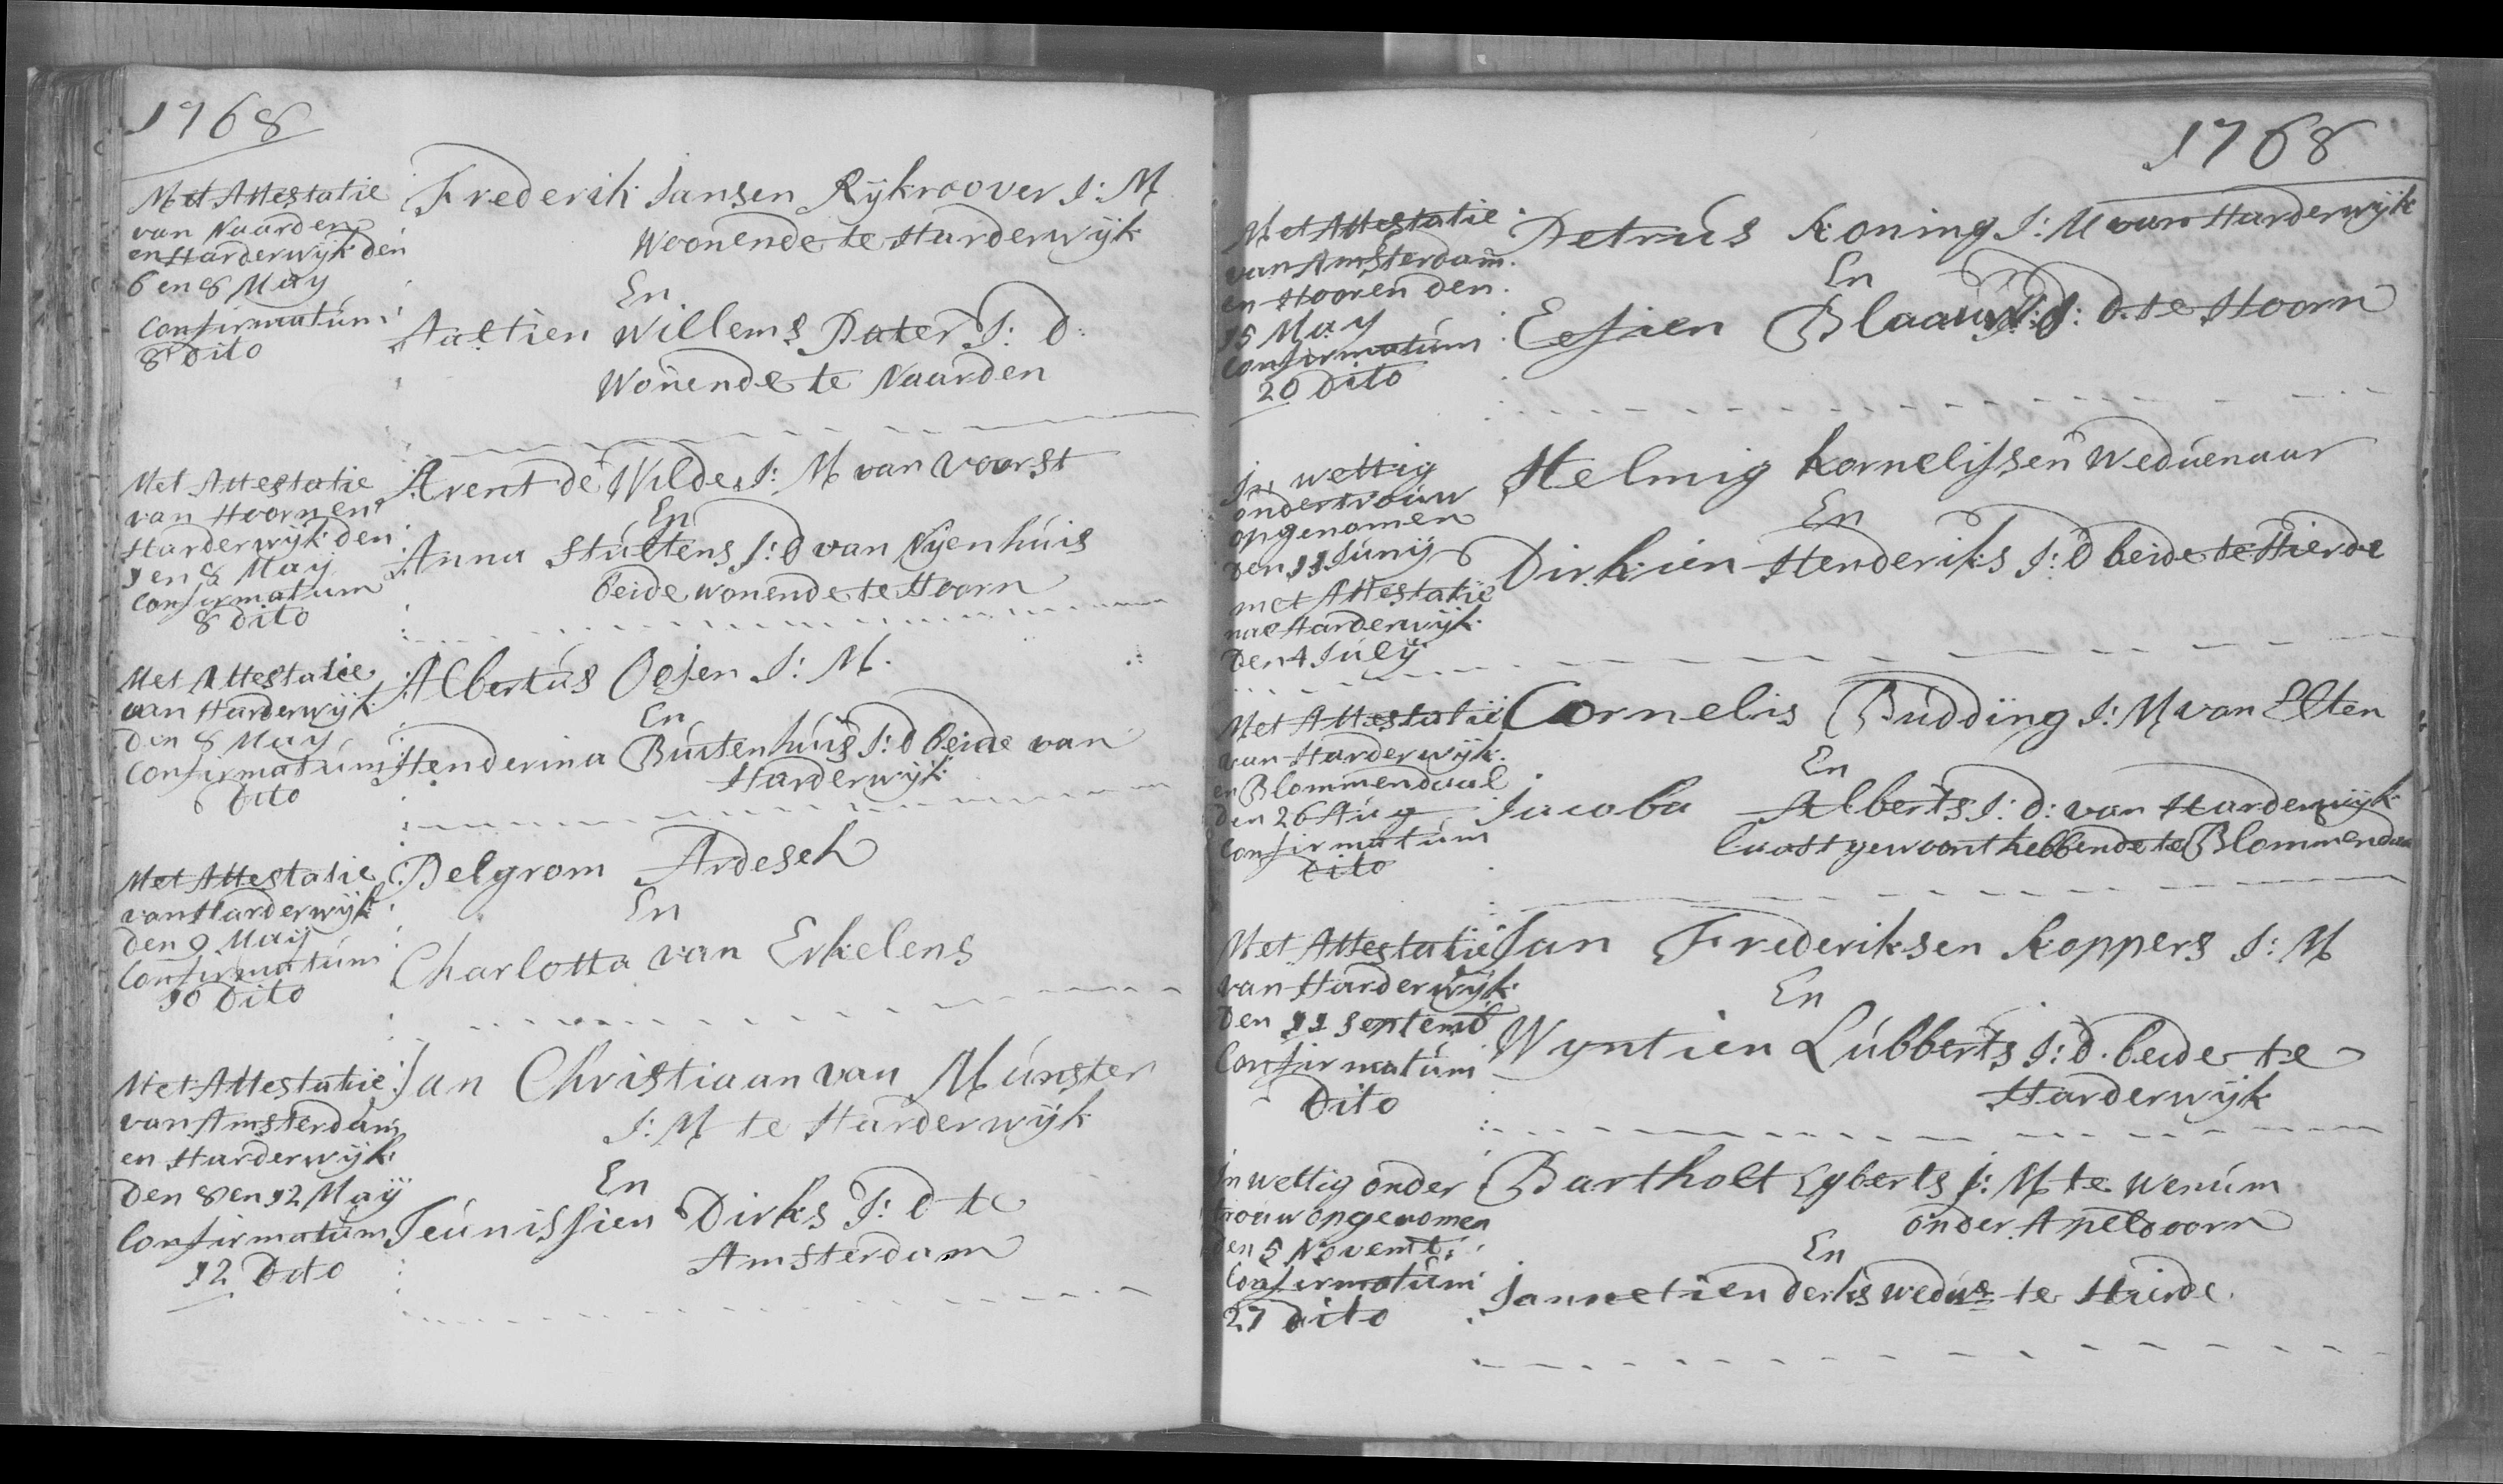 1768
Met Attestatie
van Naarden
en Harderwijk den
6 en 8 May
Confirmatúm
8 Dito
Frederik Jansen Rijkroover J: M
Woonende te Harderwijk
En
Aaltien Willems Dater J: D:
Wonende te Naarden
Met Attestatie
van Hoorn en
Harderwijk den
1 en 8 May
Confirmatum
8 Dito
Arent de Wilde J: M van Voorst
En
Anna Stúltens J: D van Nijenhúis
beide wonende te Hoorn
Met Attestatie
van Harderwijk
den 8 May
Confirmatúm
Dito
Albertús Oosen J: M.
En
Henderina Búitenhúis J: D beide van
Harderwijk
Met Attestatie
van Harderwijk
Den 9 Maij
Confirmatúm
10 Dito
Belgrom Ardesch
En
Charlotta van Erkelens
Met Attestatie
van Amsterdam
en Harderwijk
Den 8 en 12 Maij
Confirmatúm
12 Dito
Jan Christiaan van Múnster
J: M te Harderwijk
En
Teúnissien Dirks J: D te
Amsterdam
1768
Met Attestatie
van Amsterdam
en Hooren den
15 May
Confirmatúm
20 Dito
Petrús Koning J: M van Harderwijk
En
Eefien Blaauw J: D. te Hoorn
In wettig
ondertroúw
opgenomen
den 11 Júnij
met Attestatie
nae Harderwijk
Den 4 Júlij
Helmig Kornelissen Wedúenaar
En
Dirkien Henderiks J: D beide te Hierde
Met Attestatie
van Harderwijk
en Blommendaal
den 26 Aúg
Confirmatúm
Dito
Cornelis Búdding J: M van Elten
En
Jacoba Alberts J: D: van Harderwijk
laast gewoont hebbende te Blommendaal
Met Attestatie
van Harderwijk
Den 11 Septemb
Confirmatúm
Dito
Jan Frederiksen Koppers J: M
En
Wyntien Lúbberts J: D. beide te
Harderwijk
In wettig onder
troúw opgenomen
den 5 Novemb:
Confirmatúm
27 Dito
Bartholt Egberts J: M te Wenúm
onder Apeldoorn
En
Jannetien Derks Wedúe te Hierde.